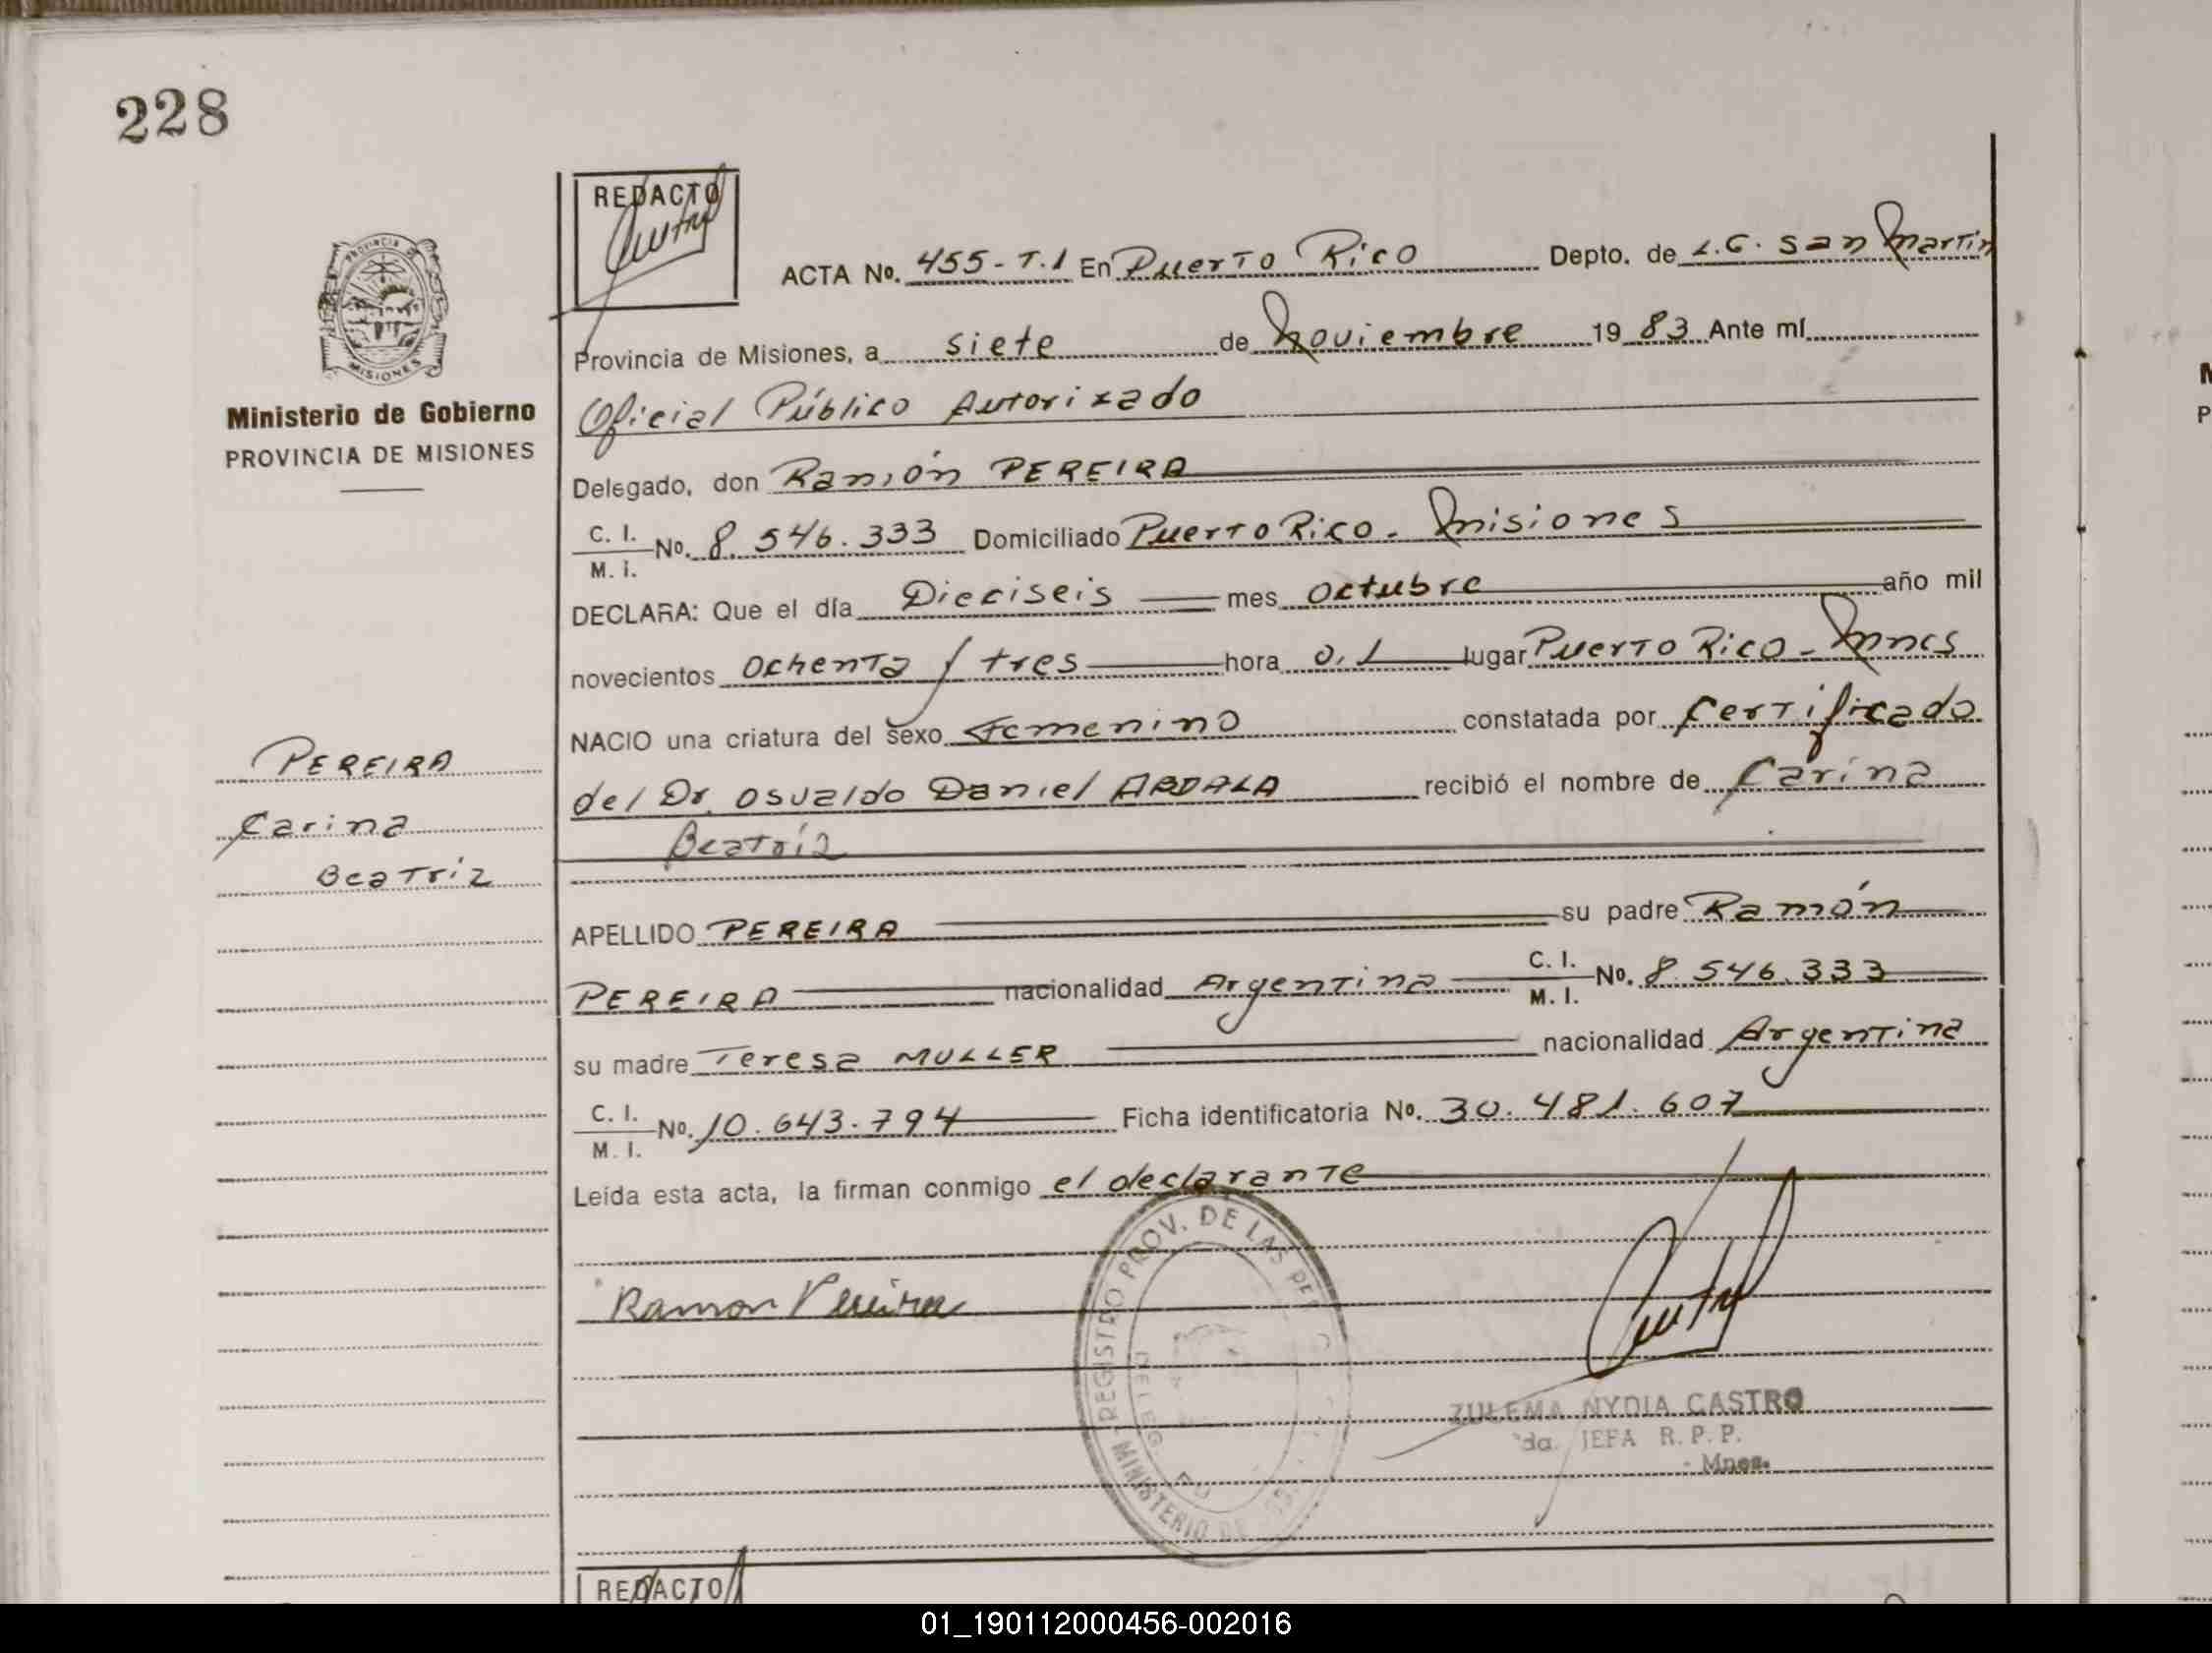 228
REDACTO
ACTA No. 455-T.1 En Puerto Rico Depto. de L.G. San Martin
Provincia de Misiones, a siete de Noviembre 1983 Ante mí
Oficial Público Autorizado
Delegado, don Ramón PEREIRA
C. I. / M. I. No. 8.546.333 Domiciliado Puerto Rico - Misiones
DECLARA: Que el día Dieciseis mes Octubre año mil
novecientos Ochenta y tres hora 0,1 lugar Puerto Rico - Mnes
NACIO una criatura del sexo Femenino constatada por Certificado
del Dr. Osvaldo Daniel ABDALA recibió el nombre de Carina
Beatríz
APELLIDO PEREIRA su padre Ramón
PEREIRA nacionalidad Argentina C. I. / M. I. No. 8.546.333
su madre Teresa MULLER nacionalidad Argentina
C. I. / M. I. No. 10.643.794 Ficha identificatoria No. 30.481.607
Leída esta acta, la firman conmigo el declarante
Ramon Pereira
REGISTRO PROV. DE LAS PER
MINISTERIO DE
DELEG
ZULEMA NYDIA CASTRO
da. JEFA R. P. P.
- Mnes.
PROVINCIA DE
MISIONES
Ministerio de Gobierno
PROVINCIA DE MISIONES
PEREIRA
Carina
Beatríz
REDACTO
01_190112000456-002016